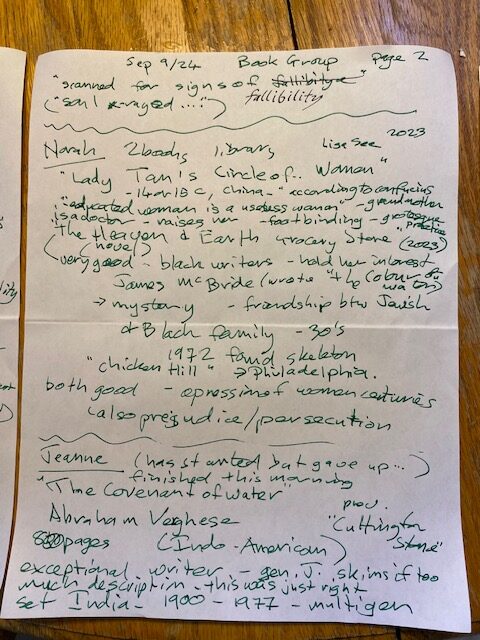 Sep 9/24 Book Group page 2
"scanned for signs of fallibity"
fallibility
("soul x-rayed...")
Norah 2 books library Lisa See 2023
"Lady Tan's Circle of.. Woman"
- 14 or 15 c, China - "according to confucius
"educated woman is a useless woman" - grandmother
is a doctor - raises her - footbinding - grotesque practice
"The Heaven & Earth Grocery Store" (2023)
(novel)
very good - black writers - hold her interest
James McBride (wrote "the Colour of water")
→ mystery - friendship btw Jewish
& Black family - 30's
1972 found skeleton
"chicken Hill" → Philadelphia.
both good - opression of women centuries
also prejudice/persecution
Jeanne (has started but gave up...)
finished this morning
"The Covenant of Water"
Abraham Verghese prev. "Cuttington Stone"
pages (Indo-American)
exceptional writer - gen. J. skims if too
much description - this was just right
set India - 1900 - 1977 - multigen